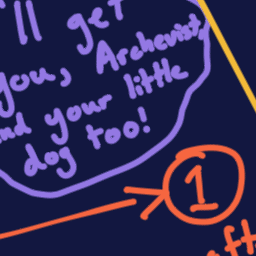 'll get
you, Archevist,
and your little
dog too!
1
aft